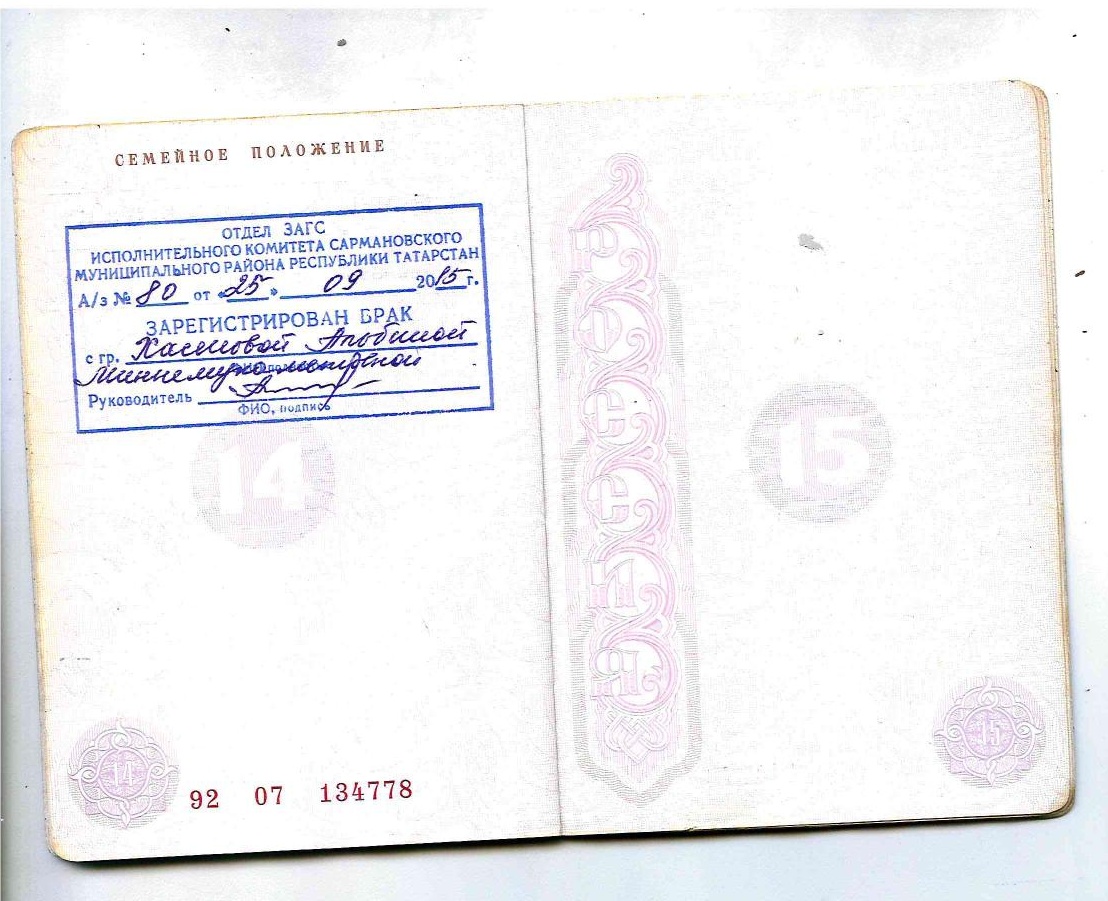 СЕМЕЙНОЕ ПОЛОЖЕНИЕ
ОТДЕЛ ЗАГС
ИСПОЛНИТЕЛЬНОГО КОМИТЕТА САРМАНОВСКОГО
МУНИЦИПАЛЬНОГО РАЙОНА РЕСПУБЛИКИ ТАТАРСТАН
А/з № 80 от «25» 09 2015 г.
ЗАРЕГИСТРИРОВАН БРАК
с гр. Хасановой Альбиной
Руководитель
ФИО, подпись
14
14
92 07 134778
РОССИЯ
15
15